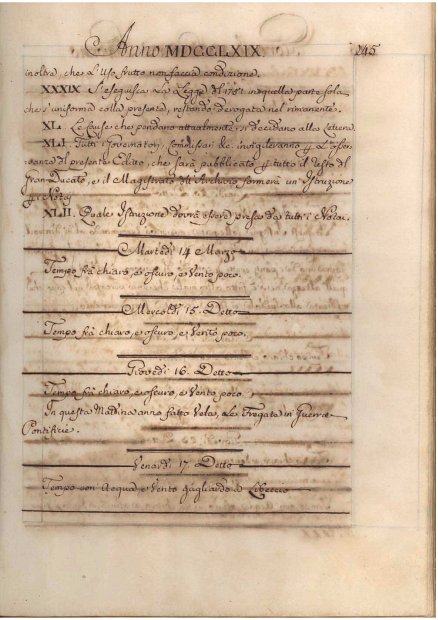 Anno MDCCLXIX 245
inoltre, che l'Usofrutto non faccia condizione.
XXXIX Si eseguisca la Legge del 1751 in quella parte sola
che s'uniforma colla presente, restando derogata nel rimanente.
XL. Le Cause che pendono attualmente, si decidano alla Lettera.
XLI. Tutti i Governatori, Comissari &c. invigileranno p. l'osser-
vanza del presente Editto, che sarà pubblicato p. tutto il resto del
Gran Ducato, e il Magistrato dell'Archivio formerà un'Istruzione
p. i Notaj
XLII. Quale Istruzione dovrà essere presa da tutti i Notai.
Martedì 14 Marzo
Tempo frà chiaro, e oscuro, e Vento poco.
Mercoldì 15. Detto
Tempo frà chiaro, e oscuro, e Vento poco.
Giovedì 16. Detto
Tempo frà chiaro, e oscuro, e Vento poco
In questa Mattina anno fatto Vela, le Fregate in Guerra
Pontificie.
Venerdì 17. Detto
Tempo con Acqua, e Vento gagliardo a Libeccio